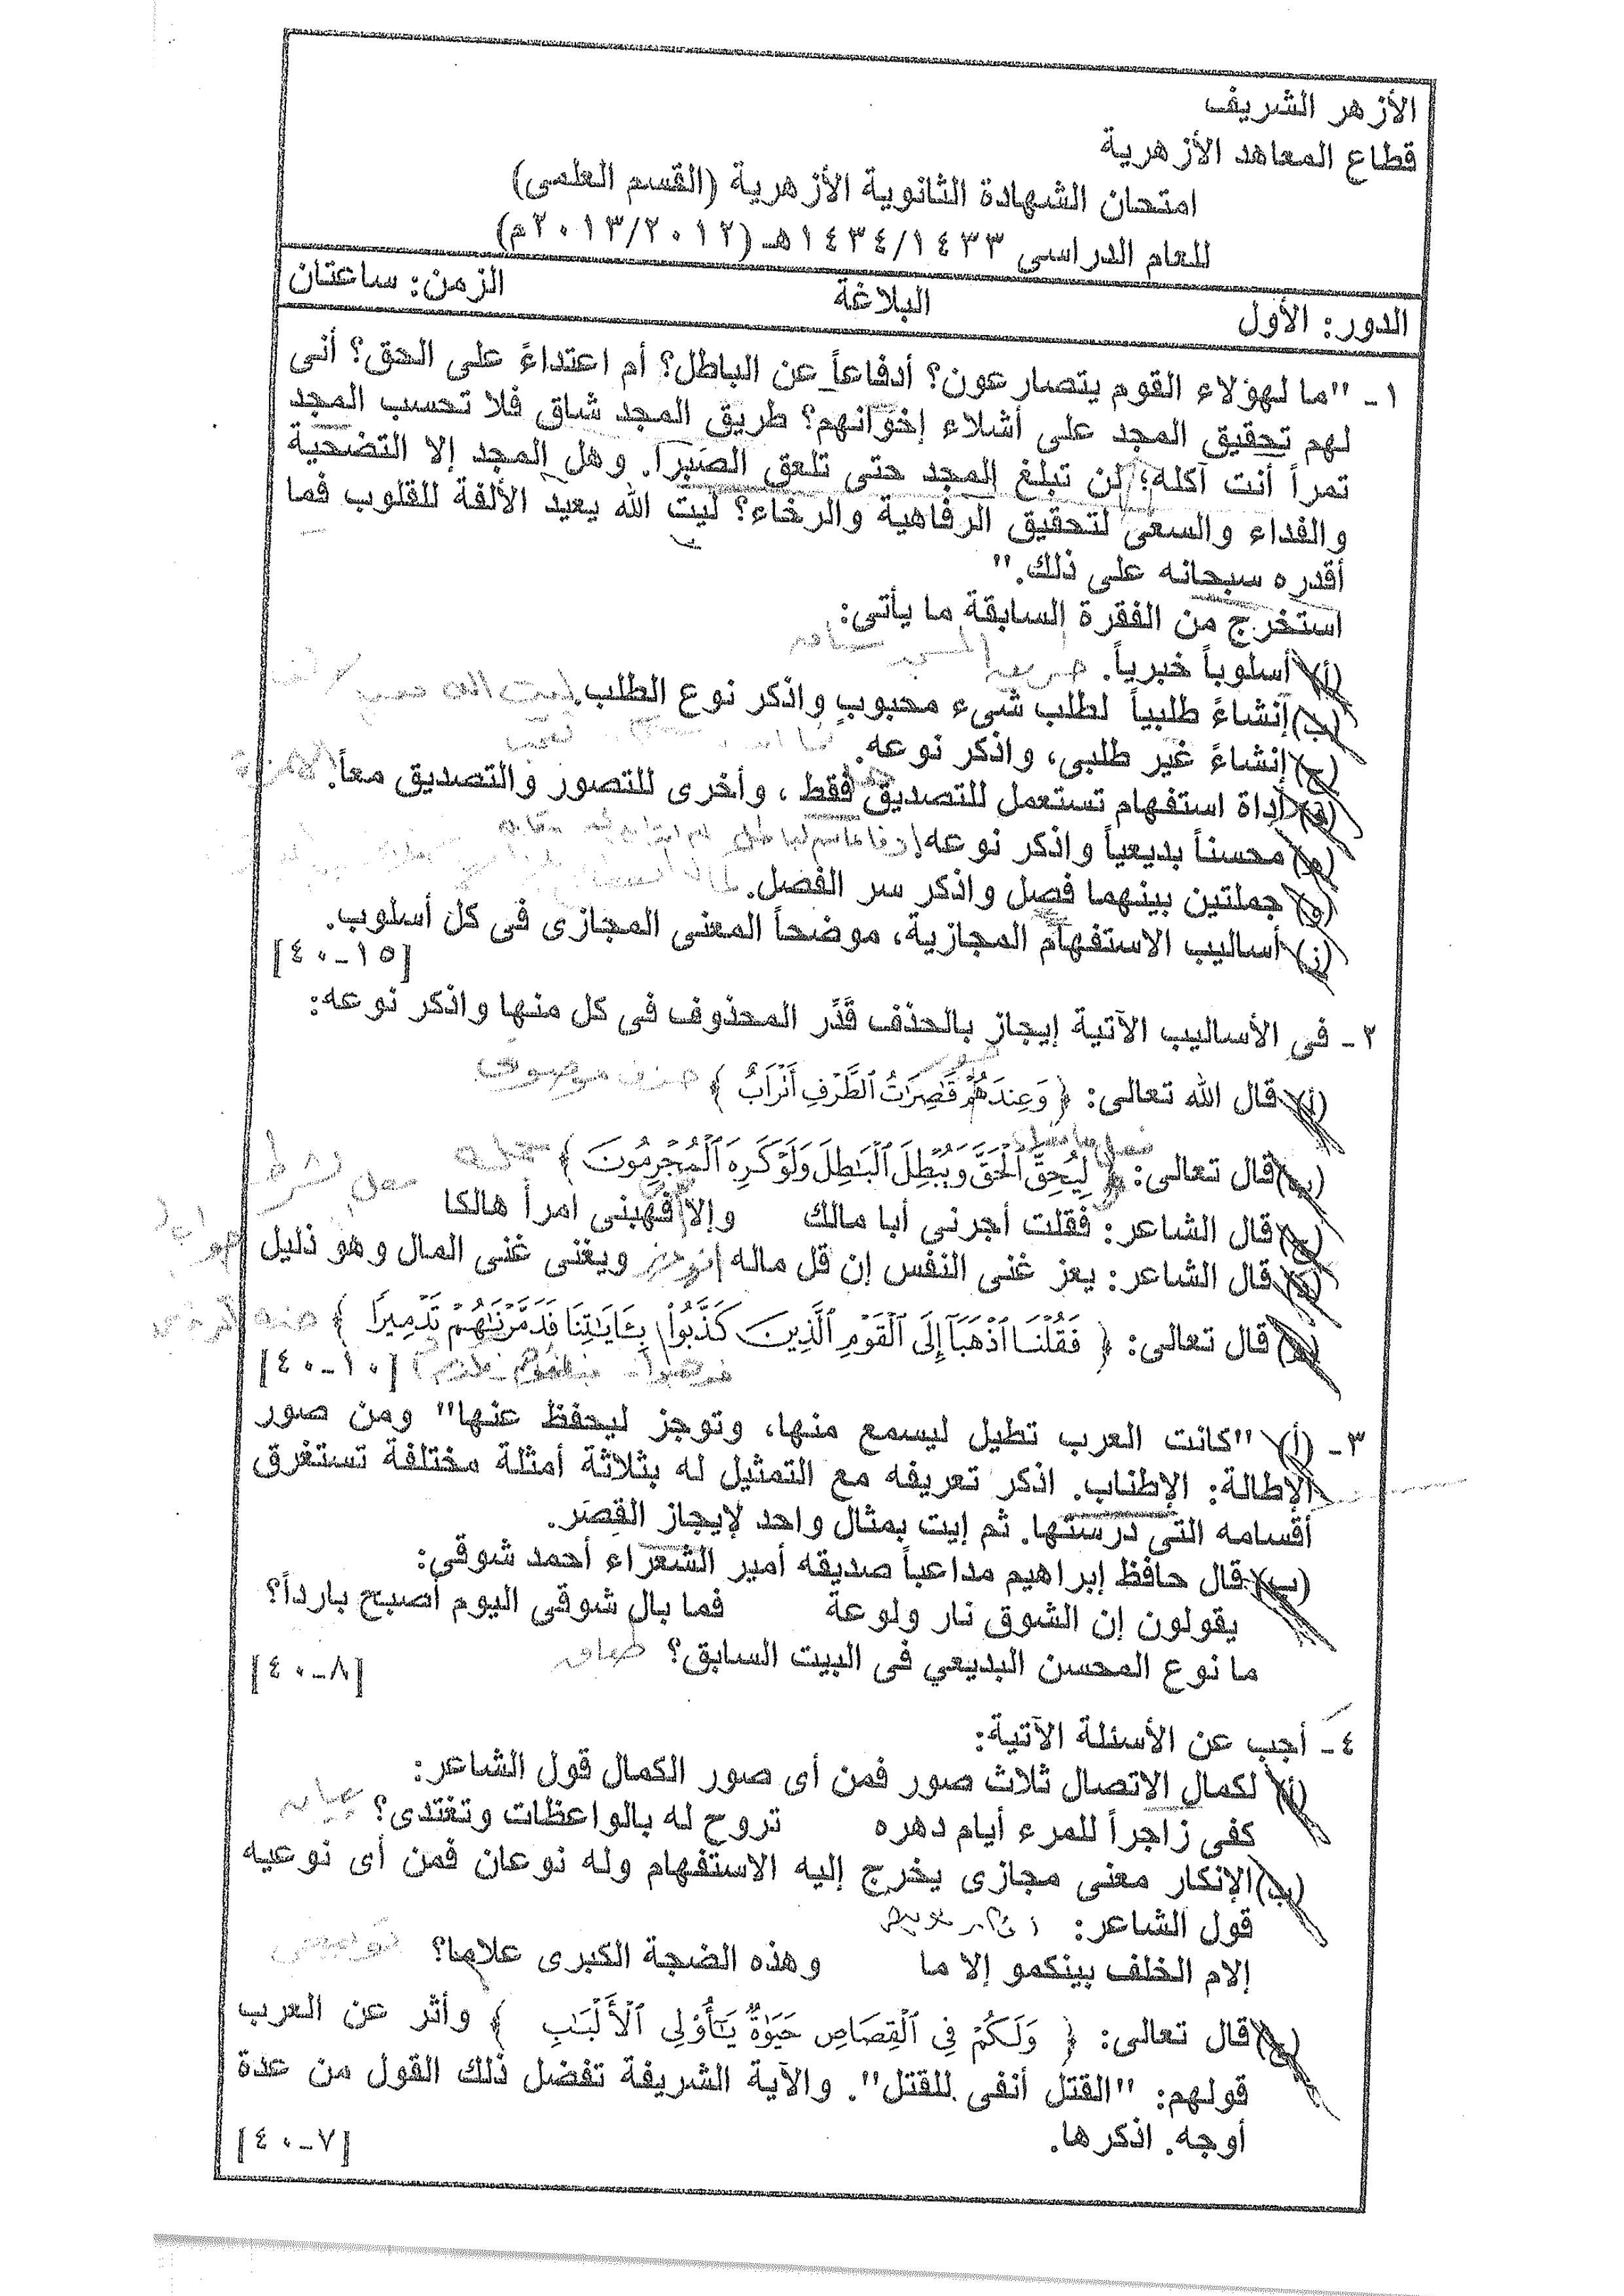 الأزهر الشريف
قطاع المعاهد الأزهرية
امتحان الشهادة الثانوية الأزهرية (القسم العلمى)
للعام الدراسى ١٤٣٤/١٤٣٣هـ (٢٠١٣/٢٠١٢م)
الدور: الأول البلاغة الزمن: ساعتان
١- "ما لهؤلاء القوم يتصارعون؟ أدفاعاً عن الباطل؟ أم اعتداءً على الحق؟ أنى
لهم تحقيق المجد على أشلاء إخوانهم؟ طريق المجد شاق فلا تحسب المجد
تمراً أنت آكله؛ لن تبلغ المجد حتى تلعق الصبرا. وهل المجد إلا التضحية
والفداء والسعى لتحقيق الرفاهية والرخاء؟ ليت الله يعيد الألفة للقلوب فما
أقدره سبحانه على ذلك."
استخرج من الفقرة السابقة ما يأتى:
(أ) أسلوباً خبرياً.
(ب) إنشاءً طلبياً لطلب شىء محبوب واذكر نوع الطلب. ليت الله
(ج) إنشاءً غير طلبى، واذكر نوعه.
(د) أداة استفهام تستعمل للتصديق فقط، وأخرى للتصور والتصديق معاً. الهمزة
(هـ) محسناً بديعياً واذكر نوعه
(و) جملتين بينهما فصل واذكر سر الفصل.
(ز) أساليب الاستفهام المجازية، موضحاً المعنى المجازى فى كل أسلوب.
[١٥-٤٠]
٢- فى الأساليب الآتية إيجاز بالحذف قَدِّر المحذوف فى كل منها واذكر نوعه:
(أ) قال الله تعالى: ﴿ وَعِندَهُمْ قَٰصِرَٰتُ ٱلطَّرْفِ أَتْرَابٌ ﴾ حذف موصوف
(ب) قال تعالى: ﴿ لِيُحِقَّ ٱلْحَقَّ وَيُبْطِلَ ٱلْبَٰطِلَ وَلَوْ كَرِهَ ٱلْمُجْرِمُونَ ﴾ جملة
(ج) قال الشاعر: فقلت أجرنى أبا مالك وإلا فهبنى امرأ هالكا
(د) قال الشاعر: يعز غنى النفس إن قل ماله ويغنى غنى المال وهو ذليل
(هـ) قال تعالى: ﴿ فَقُلْنَا ٱذْهَبَآ إِلَى ٱلْقَوْمِ ٱلَّذِينَ كَذَّبُوا۟ بِـَٔايَٰتِنَا فَدَمَّرْنَٰهُمْ تَدْمِيرًا ﴾
[١٠-٤٠]
٣- (أ) "كانت العرب تطيل ليسمع منها، وتوجز ليحفظ عنها" ومن صور
الإطالة: الإطناب. اذكر تعريفه مع التمثيل له بثلاثة أمثلة مختلفة تستغرق
أقسامه التى درستها. ثم إيت بمثال واحد لإيجاز القِصَر.
(ب) قال حافظ إبراهيم مداعباً صديقه أمير الشعراء أحمد شوقى:
يقولون إن الشوق نار ولوعة فما بال شوقى اليوم أصبح بارداً؟
ما نوع المحسن البديعي فى البيت السابق؟ طباق
[٨-٤٠]
٤- أجب عن الأسئلة الآتية:
(أ) لكمال الاتصال ثلاث صور فمن أى صور الكمال قول الشاعر:
كفى زاجراً للمرء أيام دهره تروح له بالواعظات وتغتدى؟ بيان
(ب) الإنكار معنى مجازى يخرج إليه الاستفهام وله نوعان فمن أى نوعيه
قول الشاعر:
إلام الخلف بينكمو إلا ما وهذه الضجة الكبرى علاما؟ توبيخى
(ج) قال تعالى: ﴿ وَلَكُمْ فِى ٱلْقِصَاصِ حَيَوٰةٌ يَٰٓأُو۟لِى ٱلْأَلْبَٰبِ ﴾ وأثر عن العرب
قولهم: "القتل أنفى للقتل". والآية الشريفة تفضل ذلك القول من عدة
أوجه. اذكرها.
[٧-٤٠]